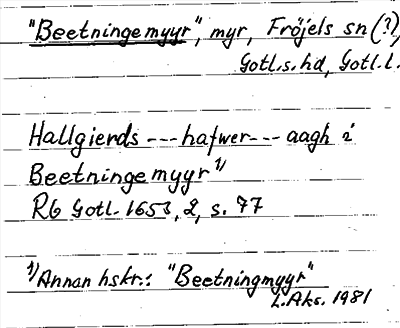 "Beetningemyyr", myr, Fröjels sn (?),
Gotl.s.hd, Gotl.l.
Hallgierds --- hafwer --- aagh i
Beetningemyyr 1)
RG Gotl. 1653, 2, s. 77
1) Annan hskr.: "Beetningmyyr"
L.Aks. 1981